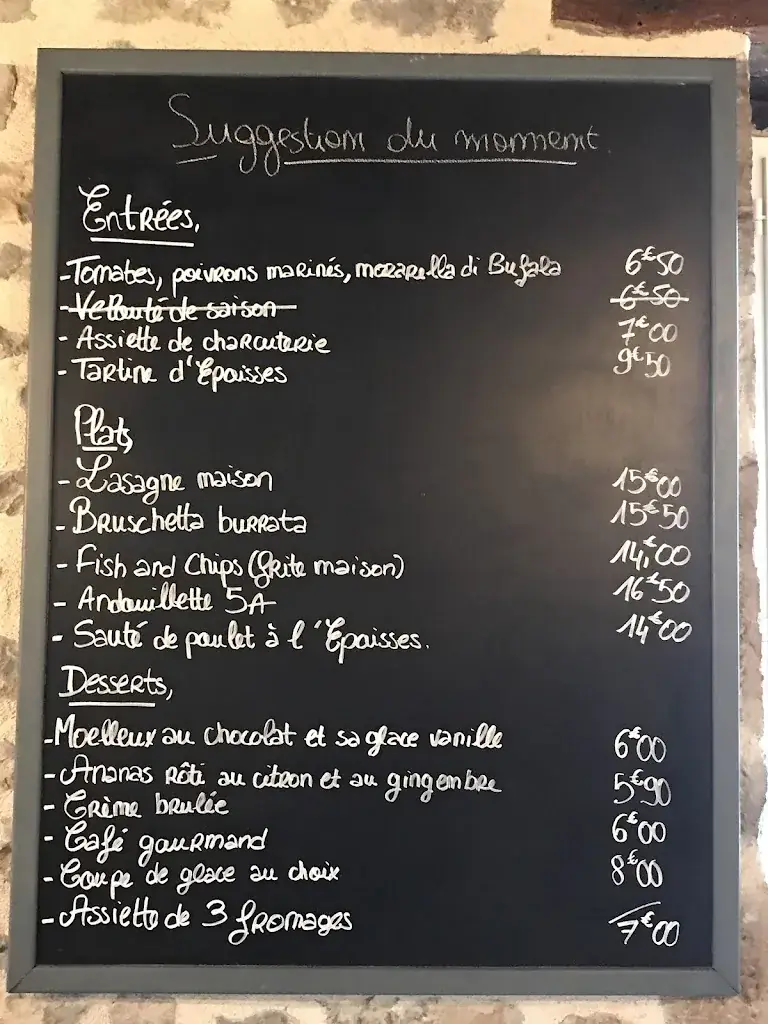 Suggestion du moment
Entrées,
- Tomates, poivrons marinés, mozarella di Bufala 6€50
- Velouté de saison 6€50
- Assiette de charcuterie 7€00
- Tartine d'Epoisses 9€50
Plats,
- Lasagne maison 15€00
- Bruschetta burrata 15€50
- Fish and Chips (frite maison) 14,€00
- Andouillette 5A 16€50
- Sauté de poulet à l'Epoisses. 14€00
Desserts,
- Moelleux au chocolat et sa glace vanille 6€00
- Ananas rôti au citron et au gingembre 5€90
- Crème brulée
- Café gourmand 6€00
- Coupe de glace au choix 8€00
- Assiette de 3 fromages 7€00